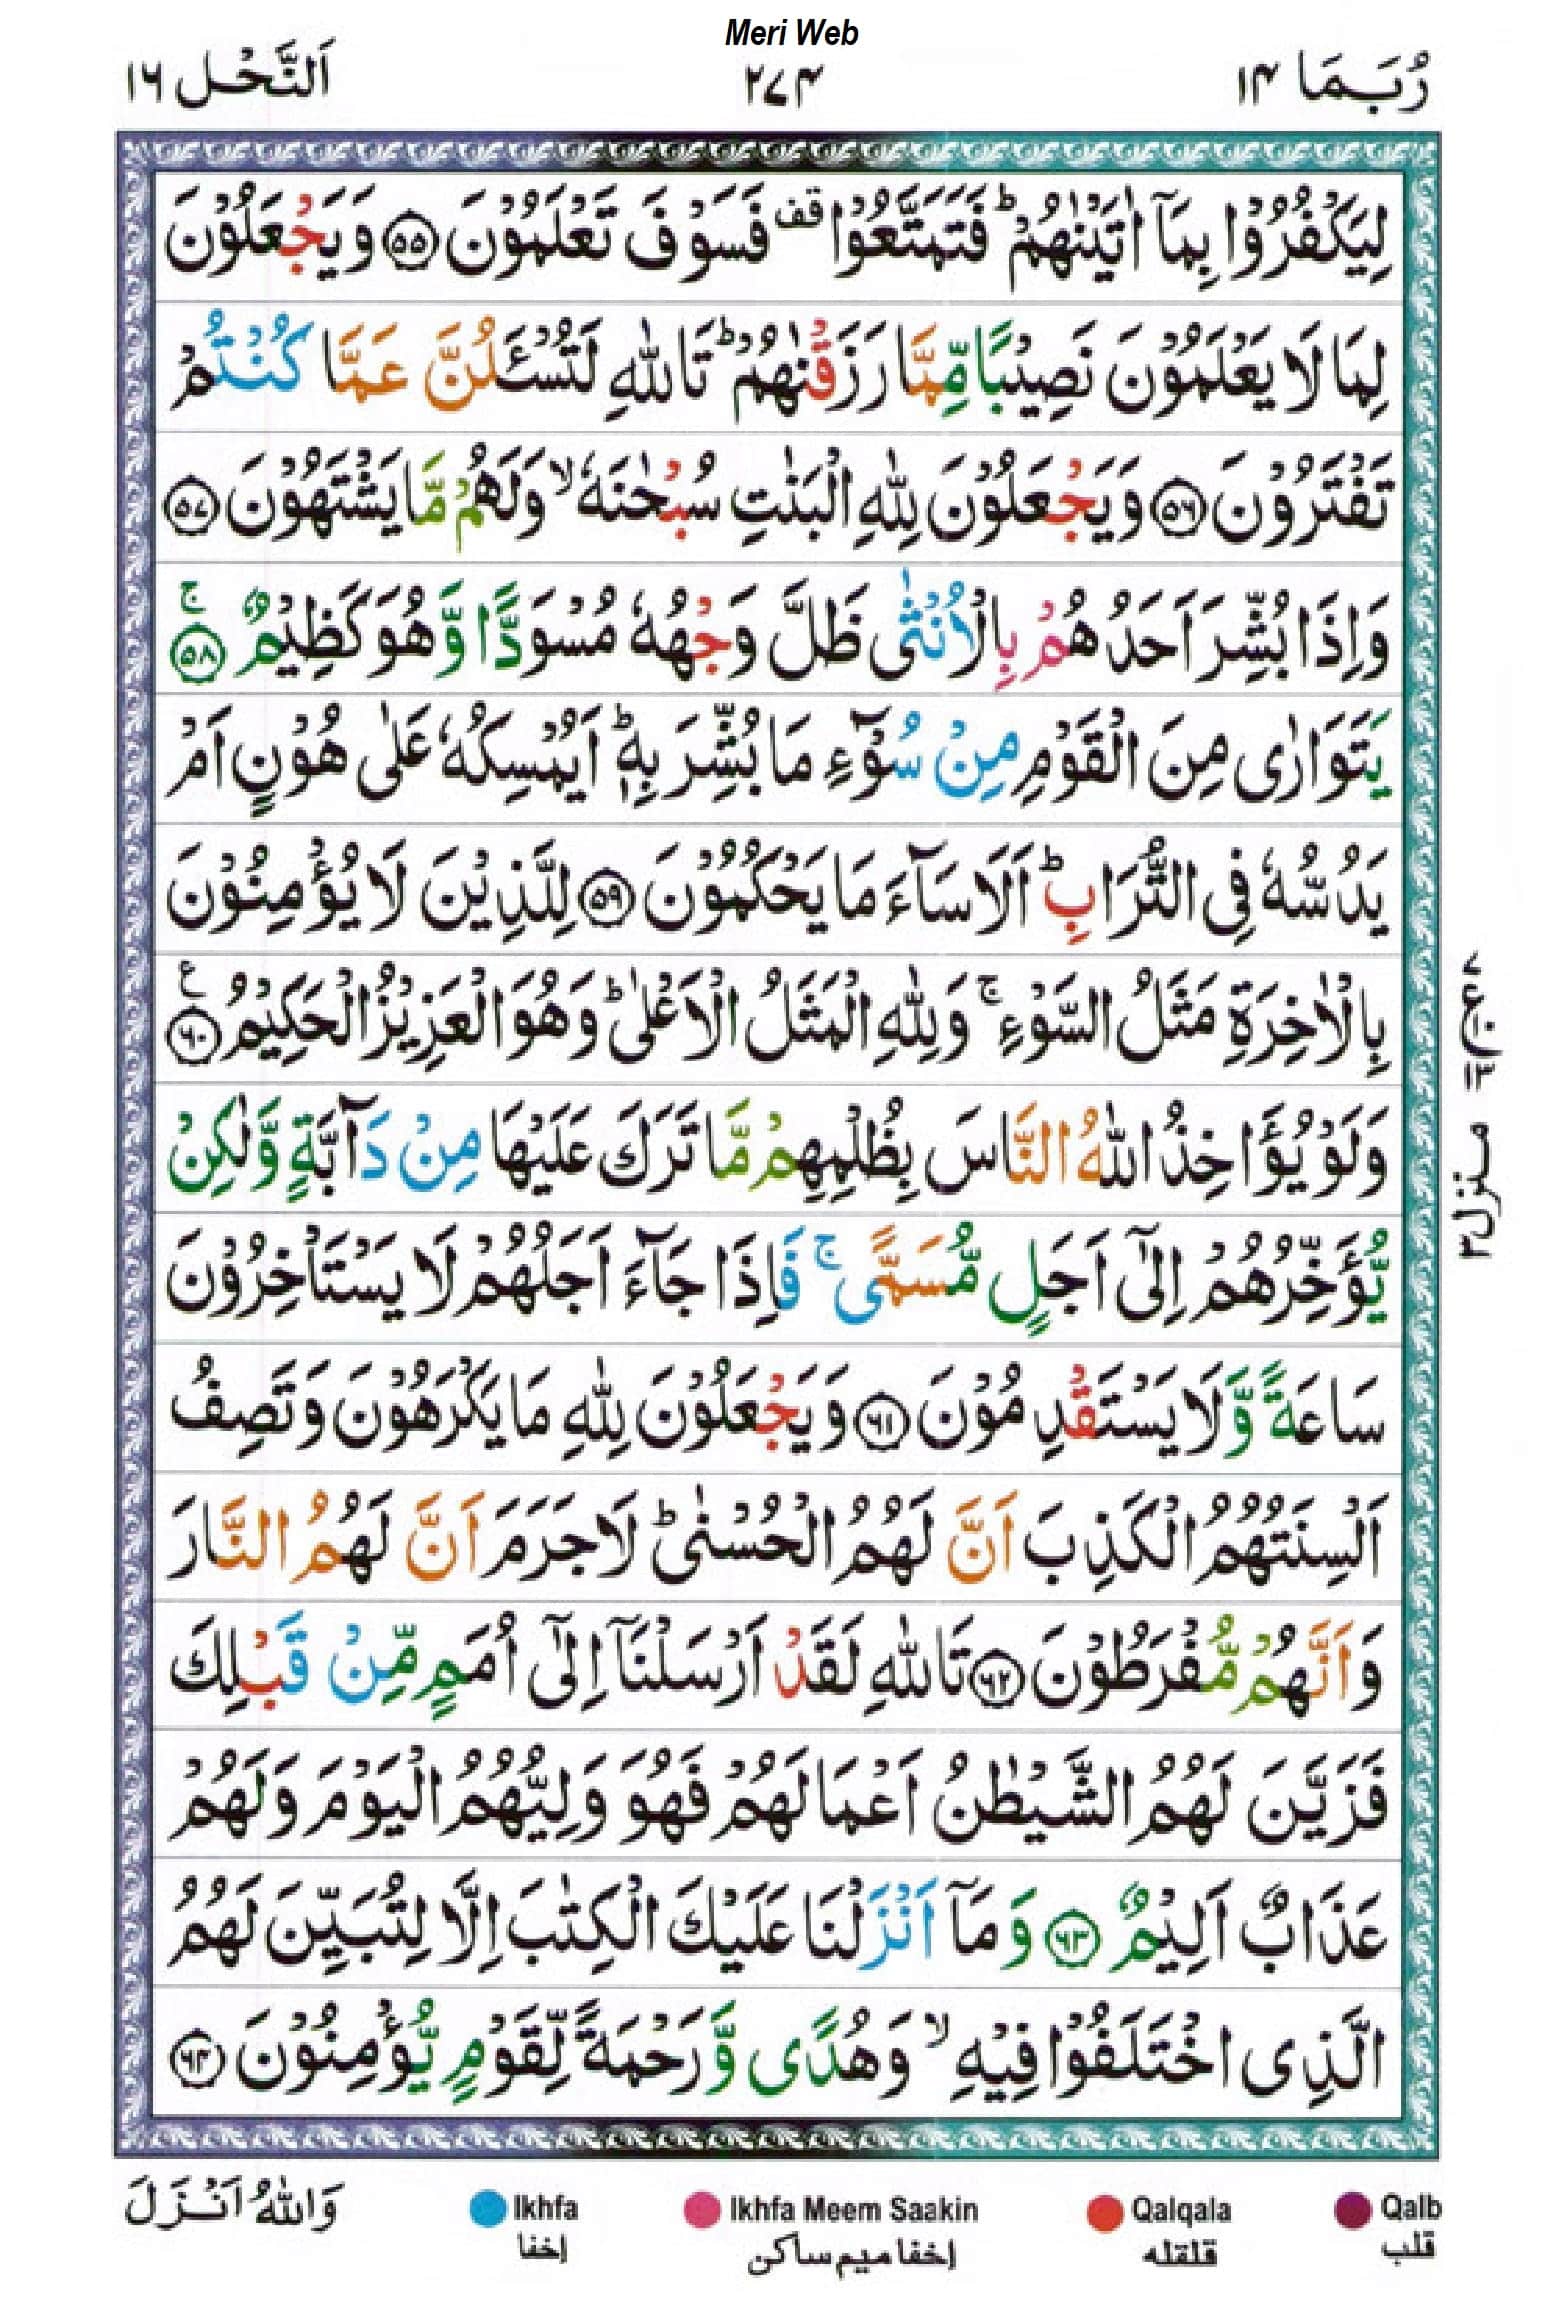 Meri Web
رُبَمَا ۱۴
۲۷۴
اَلنَّحْل ۱۶
لِيَكْفُرُوْا بِمَآ اٰتَيْنٰهُمْ ؕ فَتَمَتَّعُوْا قف فَسَوْفَ تَعْلَمُوْنَ ۵۵ وَيَجْعَلُوْنَ
لِمَا لَا يَعْلَمُوْنَ نَصِيْبًا مِّمَّا رَزَقْنٰهُمْ ؕ تَاللّٰهِ لَتُسْـَٔلُنَّ عَمَّا كُنْتُمْ
تَفْتَرُوْنَ ۵۶ وَيَجْعَلُوْنَ لِلّٰهِ الْبَنٰتِ سُبْحٰنَهٗ ۙ وَلَهُمْ مَّا يَشْتَهُوْنَ ۵۷
وَاِذَا بُشِّرَ اَحَدُهُمْ بِالْاُنْثٰى ظَلَّ وَجْهُهٗ مُسْوَدًّا وَّهُوَ كَظِيْمٌ ۚ ۵۸
يَتَوَارٰى مِنَ الْقَوْمِ مِنْ سُوْٓءِ مَا بُشِّرَ بِهٖ ؕ اَيُمْسِكُهٗ عَلٰى هُوْنٍ اَمْ
يَدُسُّهٗ فِى التُّرَابِ ؕ اَلَا سَآءَ مَا يَحْكُمُوْنَ ۵۹ لِلَّذِيْنَ لَا يُؤْمِنُوْنَ
بِالْاٰخِرَةِ مَثَلُ السَّوْءِ ۚ وَلِلّٰهِ الْمَثَلُ الْاَعْلٰى ؕ وَهُوَ الْعَزِيْزُ الْحَكِيْمُ ع ۶۰
وَلَوْ يُؤَاخِذُ اللّٰهُ النَّاسَ بِظُلْمِهِمْ مَّا تَرَكَ عَلَيْهَا مِنْ دَآبَّةٍ وَّلٰكِنْ
يُّؤَخِّرُهُمْ اِلٰٓى اَجَلٍ مُّسَمًّى ۚ فَاِذَا جَآءَ اَجَلُهُمْ لَا يَسْتَاْخِرُوْنَ
سَاعَةً وَّلَا يَسْتَقْدِمُوْنَ ۶۱ وَيَجْعَلُوْنَ لِلّٰهِ مَا يَكْرَهُوْنَ وَتَصِفُ
اَلْسِنَتُهُمُ الْكَذِبَ اَنَّ لَهُمُ الْحُسْنٰى ؕ لَا جَرَمَ اَنَّ لَهُمُ النَّارَ
وَاَنَّهُمْ مُّفْرَطُوْنَ ۶۲ تَاللّٰهِ لَقَدْ اَرْسَلْنَآ اِلٰٓى اُمَمٍ مِّنْ قَبْلِكَ
فَزَيَّنَ لَهُمُ الشَّيْطٰنُ اَعْمَالَهُمْ فَهُوَ وَلِيُّهُمُ الْيَوْمَ وَلَهُمْ
عَذَابٌ اَلِيْمٌ ۶۳ وَمَآ اَنْزَلْنَا عَلَيْكَ الْكِتٰبَ اِلَّا لِتُبَيِّنَ لَهُمُ
الَّذِى اخْتَلَفُوْا فِيْهِ ۙ وَهُدًى وَّرَحْمَةً لِّقَوْمٍ يُّؤْمِنُوْنَ ۶۴
منزل۳
وَاللّٰهُ اَنْزَلَ
Ikhfa
إخفا
Ikhfa Meem Saakin
إخفا میم ساکن
Qalqala
قلقله
Qalb
قلب